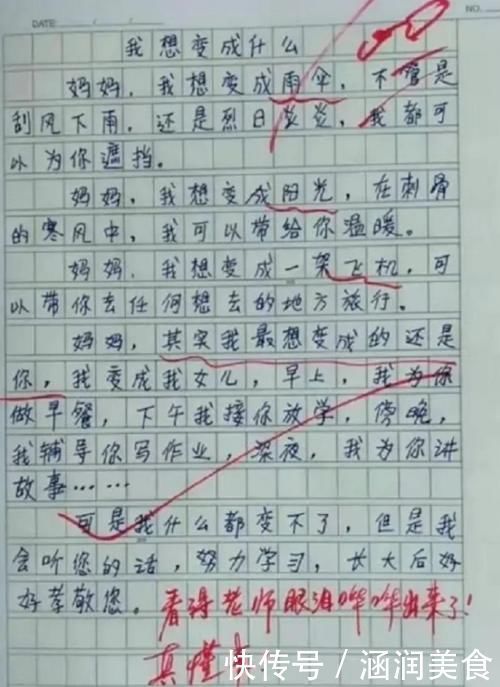 DATE:
NO.
我想变成什么
妈妈，我想变成雨伞，不管是
刮风下雨，还是烈日炎炎，我都可
以为你遮挡。
妈妈，我想变成阳光，在刺骨
的寒风中，我可以带给你温暖。
妈妈，我想变成一架飞机，可
以带你去任何想去的地方旅行。
妈妈，其实我最想变成的还是
你，我变成我女儿，早上，我为你
做早餐，下午我接你放学，傍晚，
我辅导你写作业，深夜，我为你讲
故事……
可是我什么都变不了，但是我
会听您的话，努力学习，长大后好
好孝敬您。
看得老师眼泪哗哗出来了！
真懂
快传号／涵润美食